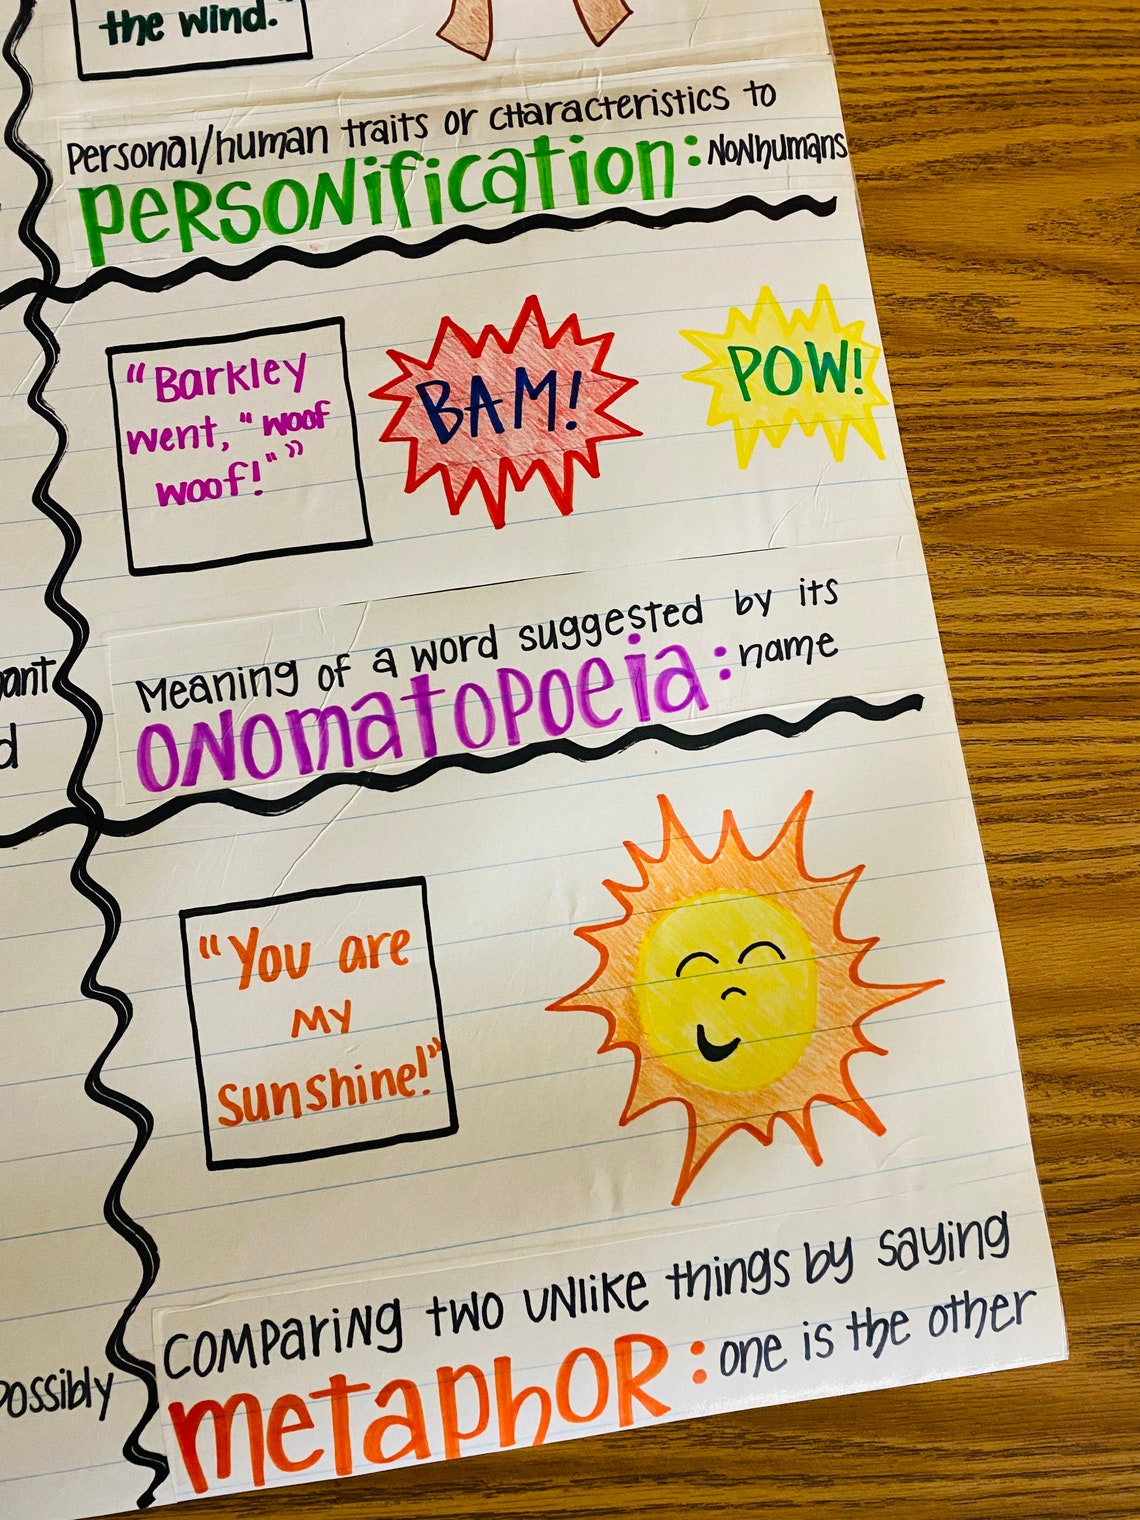 the wind."
Personal/human traits or characteristics to
Personification: Nonhumans
"Barkley
went, "woof
woof!""
BAM!
POW!
Meaning of a word suggested by its
Onomatopoeia: name
"You are
my
sunshine!"
Comparing two unlike things by saying
Metaphor: one is the other
possibly